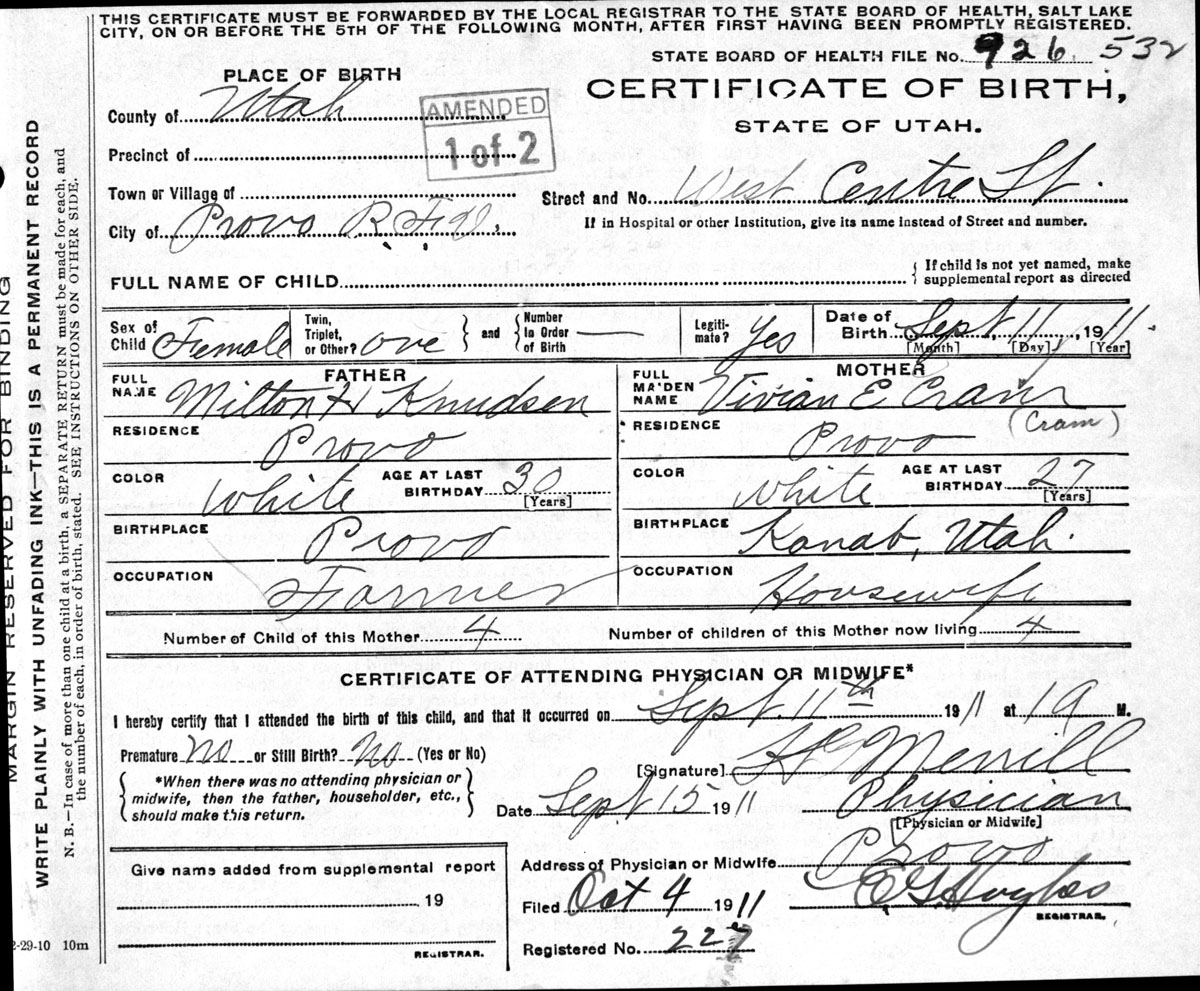 THIS CERTIFICATE MUST BE FORWARDED BY THE LOCAL REGISTRAR TO THE STATE BOARD OF HEALTH, SALT LAKE
CITY, ON OR BEFORE THE 5TH OF THE FOLLOWING MONTH, AFTER FIRST HAVING BEEN PROMPTLY REGISTERED.
STATE BOARD OF HEALTH FILE No. 926 532
PLACE OF BIRTH
CERTIFICATE OF BIRTH,
STATE OF UTAH.
County of Utah
AMENDED
1 of 2
Precinct of
Town or Village of
Street and No. West Centre St.
City of Provo R.F.D.
If in Hospital or other Institution, give its name instead of Street and number.
FULL NAME OF CHILD
If child is not yet named, make
supplemental report as directed
Sex of Child Female
Twin, Triplet, or Other? one
and
Number in Order of Birth —
Legiti-mate? Yes
Date of Birth Sept. 11, 1911.
[Month] [Day] [Year]
FATHER
FULL NAME Milton H Knudsen
RESIDENCE Provo
COLOR White
AGE AT LAST BIRTHDAY 30
[Years]
BIRTHPLACE Provo
OCCUPATION Farmer
MOTHER
FULL MAIDEN NAME Vivian E Cram
(Cram)
RESIDENCE Provo
COLOR White
AGE AT LAST BIRTHDAY 27
[Years]
BIRTHPLACE Kanab, Utah.
OCCUPATION Housewife
Number of Child of this Mother 4
Number of children of this Mother now living 4
CERTIFICATE OF ATTENDING PHYSICIAN OR MIDWIFE*
I hereby certify that I attended the birth of this child, and that it occurred on Sept. 11th 1911 at 1 a M.
Premature No or Still Birth? No (Yes or No)
*When there was no attending physician or
midwife, then the father, householder, etc.,
should make this return.
[Signature] Merrill
Date Sept 15 1911
Physician
[Physician or Midwife]
Address of Physician or Midwife Provo
Give name added from supplemental report
19
REGISTRAR.
Filed Oct 4 1911
E G Hughes
REGISTRAR.
Registered No. 227
2-29-10 10m
MARGIN RESERVED FOR BINDING
WRITE PLAINLY WITH UNFADING INK—THIS IS A PERMANENT RECORD
N. B.—In case of more than one child at a birth, a SEPARATE RETURN must be made for each, and
the number of each, in order of birth, stated. SEE INSTRUCTIONS ON OTHER SIDE.